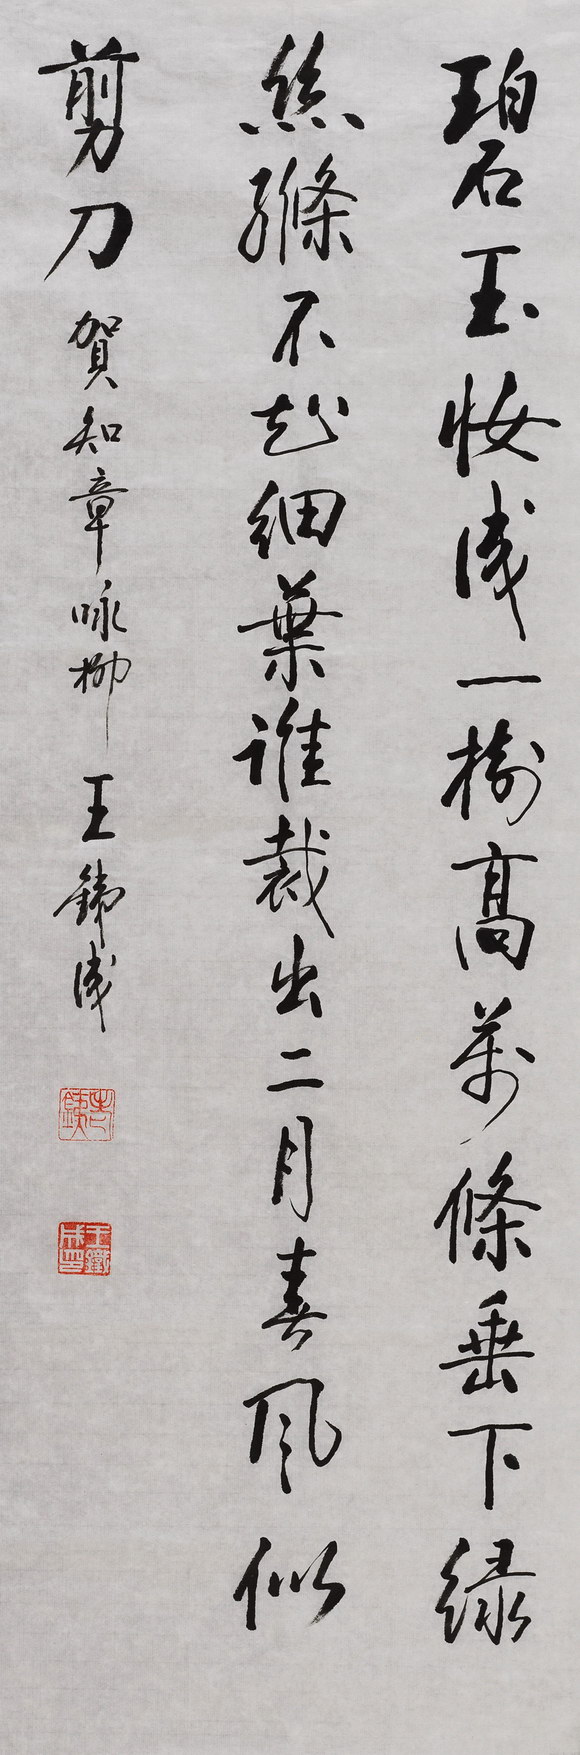 碧玉妝成一樹高萬條垂下綠
絲縧不知細葉誰裁出二月春風似
剪刀 賀知章咏柳 王鐵成
王鐵成印